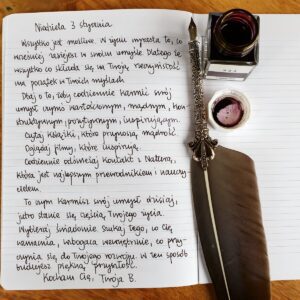 Niedziela 3 stycznia
Wszystko jest możliwe. W życiu wyrasta to, co
wcześniej zasiejesz w swoim umyśle. Dlatego że
wszystko co składa się na Twoją rzeczywistość
ma początek w Twoich myślach
Dbaj o to, żeby codziennie karmić swój
umysł czymś wartościowym, mądrym, kon-
struktywnym, pozytywnym, inspirującym.
Czytaj książki, które przynoszą mądrość.
Oglądaj filmy, które inspirują.
Codziennie odświeżaj kontakt z Naturą,
która jest najlepszym przewodnikiem i nauczy-
cielem
To czym karmisz swój umysł dzisiaj,
jutro stanie się częścią Twojego życia.
Wybieraj świadomie szukaj tego, co Cię
wzmacnia, wzbogaca wewnętrznie, co przy-
czynia się do Twojego rozwoju. W ten sposób
budujesz piękną przyszłość.
Kocham Cię, Twoja B.